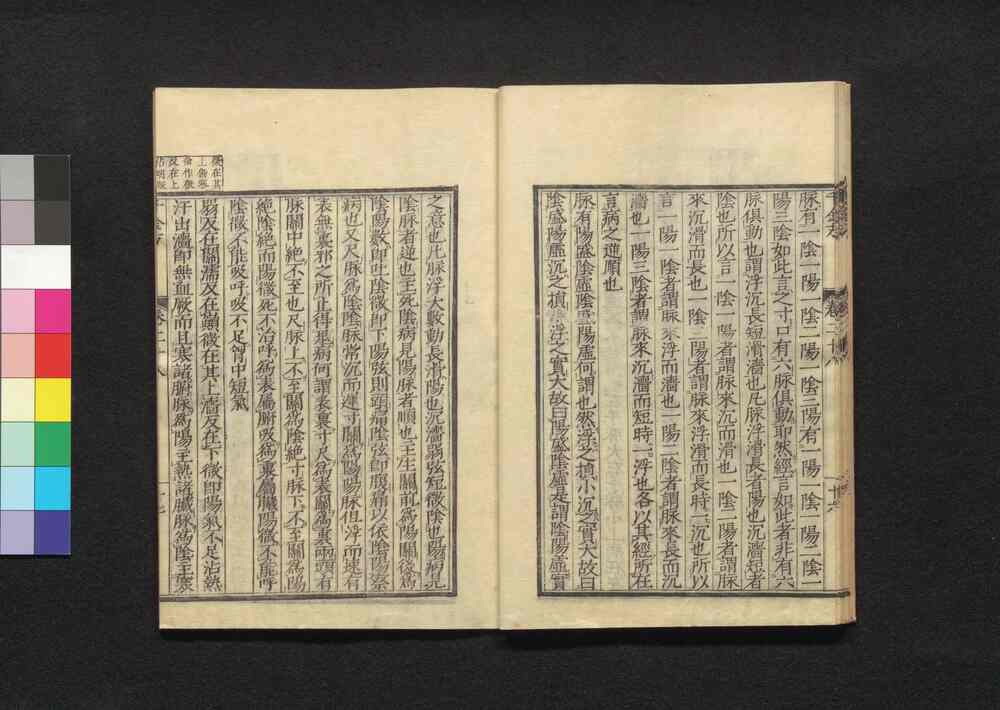 脉有一陰一陽一陰二陽一陰三陽有一陽一陰一陽二陰一
陽三陰如此言之寸口有六脉俱動耶然經言如此者非有六
脉俱動也謂浮沉長短滑濇也凡脉浮滑長者陽也沉濇短者
陰也所以言一陰一陽者謂脉來沉而滑也一陰二陽者謂脉
來沉滑而長也一陰三陽者謂脉來浮滑而長時一沉也所以
言一陽一陰者謂脉來浮而濇也一陽二陰者謂脉來長而沉
濇也一陽三陰者謂脉來沉濇而短時一浮也各以其經所在
言病之逆順也
脉有陽盛陰虛陰盛陽虛何謂也然浮之損小沉之實大故曰
陰盛陽虛沉之損小浮之實大故曰陽盛陰虛是謂陰陽虛實
之意也凡脉浮大數動長滑陽也沉濇弱弦短微陰也陽病見
陰脉者逆也主死陰病見陽脉者順也主生關前爲陽關後爲
陰陽數即吐陰微即下陽弦則頭痛陰弦即腹痛以依陰陽察
病也又尺脉爲陰陰脉常沉而遲寸關爲陽陽脉但浮而速有
表無裏邪之所止得鬼病何謂表裏寸尺爲表關爲裏兩頭有
脉關中絕不至也尺脉上不至關爲陰絕寸脉下不至關爲陽
絕陰絕而陽微死不治呼爲表屬腑吸爲裏屬臟陽微不能呼
陰微不能吸呼吸不足胷中短氣
弱反在關濡反在巔微在其上濇反在下微即陽氣不足沾熱
汗出濇即無血厥而且寒諸腑脉爲陽主熱諸臟脉爲陰主寒